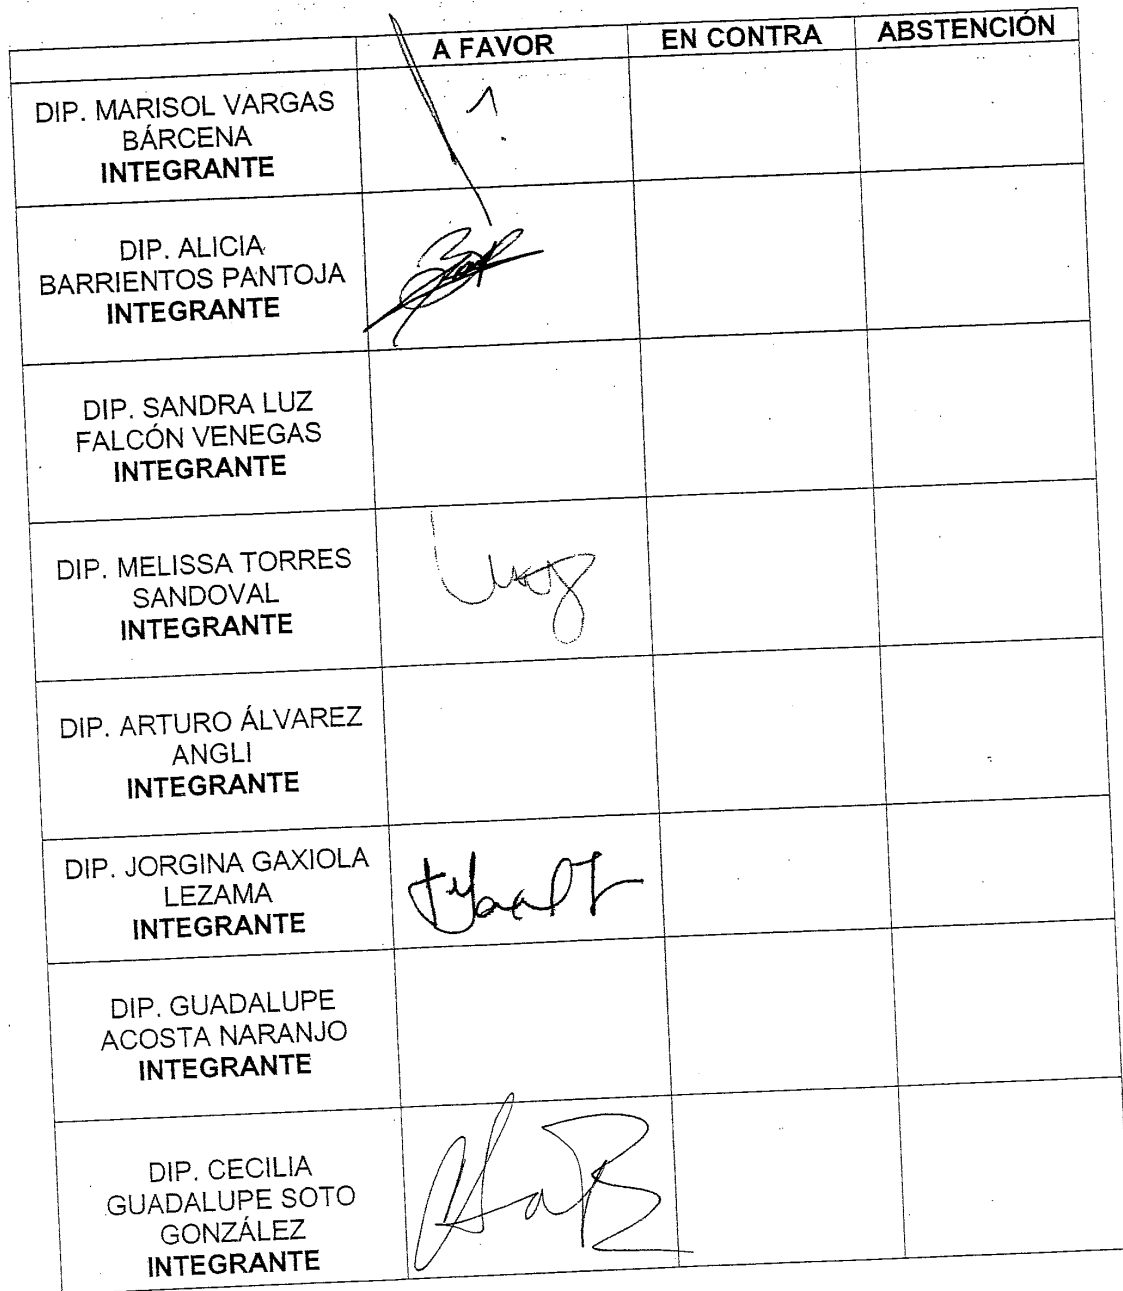 A FAVOR EN CONTRA ABSTENCIÓN
DIP. MARISOL VARGAS
BÁRCENA
INTEGRANTE
DIP. ALICIA
BARRIENTOS PANTOJA
INTEGRANTE
DIP. SANDRA LUZ
FALCÓN VENEGAS
INTEGRANTE
DIP. MELISSA TORRES
SANDOVAL
INTEGRANTE
DIP. ARTURO ÁLVAREZ
ANGLI
INTEGRANTE
DIP. JORGINA GAXIOLA
LEZAMA
INTEGRANTE
DIP. GUADALUPE
ACOSTA NARANJO
INTEGRANTE
DIP. CECILIA
GUADALUPE SOTO
GONZÁLEZ
INTEGRANTE